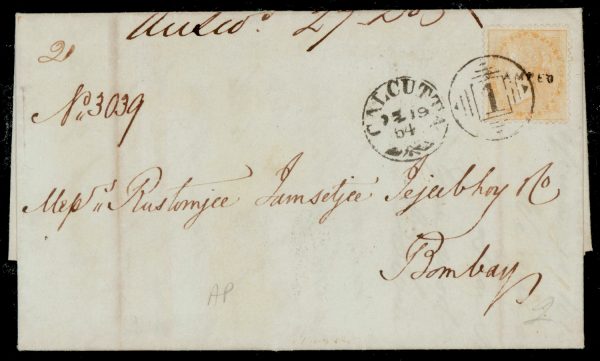 2
No. 3039
CALCUTTA
19
64
1
Messrs. Rustomjee Jamsetjee Jejeebhoy & Co
Bombay
AP
2